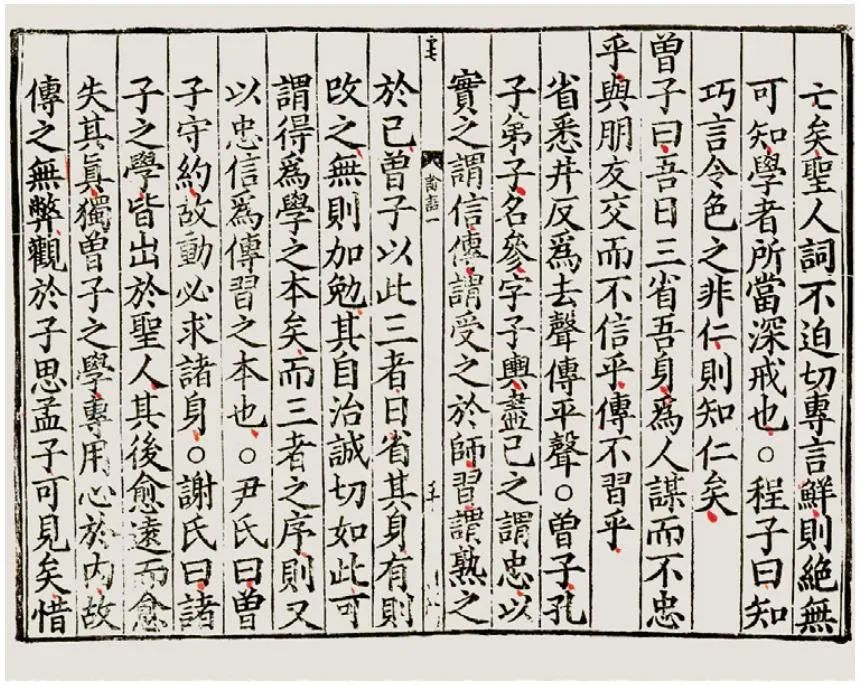 亡矣聖人詞不迫切專言鮮則絕無
可知學者所當深戒也○程子曰知
巧言令色之非仁則知仁矣
曾子曰吾日三省吾身爲人謀而不忠
乎與朋友交而不信乎傳不習乎
省悉井反爲去聲傳平聲○曾子孔
子弟子名參字子輿盡己之謂忠以
實之謂信傳謂受之於師習謂熟之
論語一
於己曾子以此三者日省其身有則
改之無則加勉其自治誠切如此可
謂得爲學之本矣而三者之序則又
以忠信爲傳習之本也○尹氏曰曾
子守約故動必求諸身○謝氏曰諸
子之學皆出於聖人其後愈遠而愈
失其眞獨曾子之學專用心於內故
傳之無弊觀於子思孟子可見矣惜